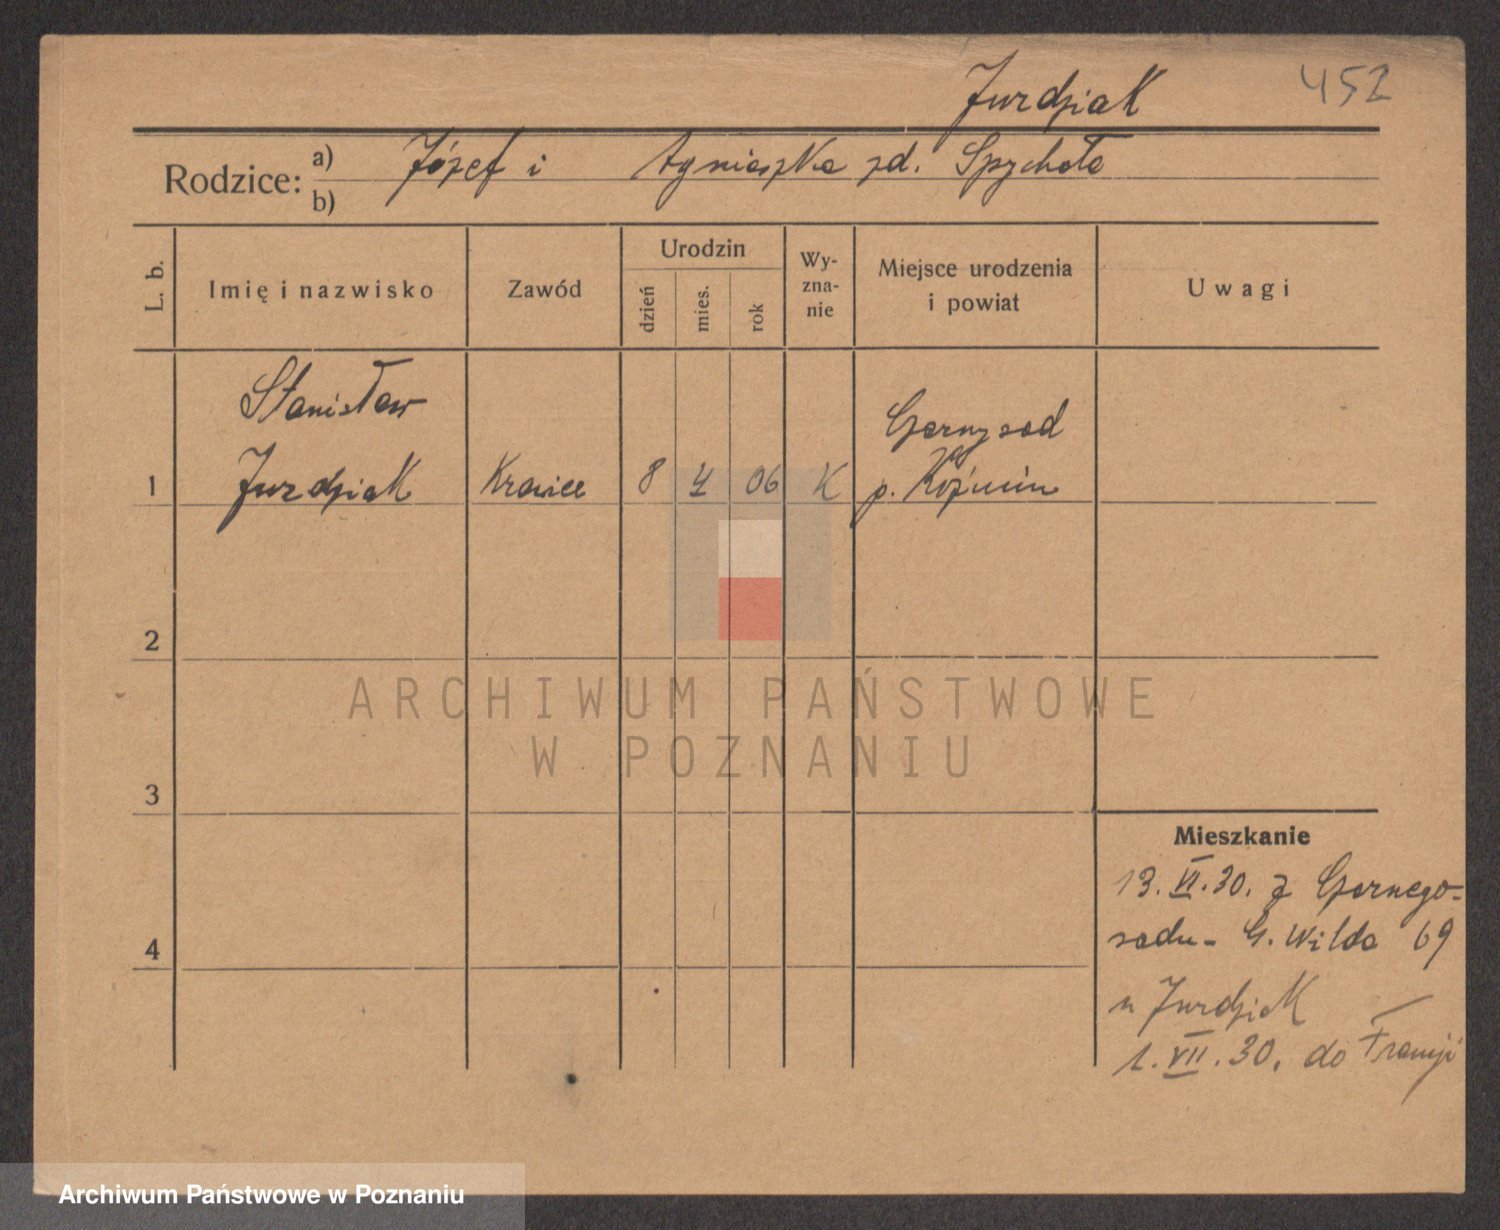 Jurdziak 452
Rodzice: a) Józef i Agnieszka zd. Spychała
b)
L. b. Imię i nazwisko Zawód Urodzin dzień mies. rok Wy-zna-nie Miejsce urodzenia i powiat Uwagi
Stanisław Czarnysad
1 Jurdziak Krawiec 8 4 06 K p. Koźmin
2
ARCHIWUM PAŃSTWOWE
W POZNANIU
3
Mieszkanie
13. VI. 30. z Czarnego-
sadu - G. Wilda 69
4
u Jurdziak
1. VII. 30. do Francji
Archiwum Państwowe w Poznaniu